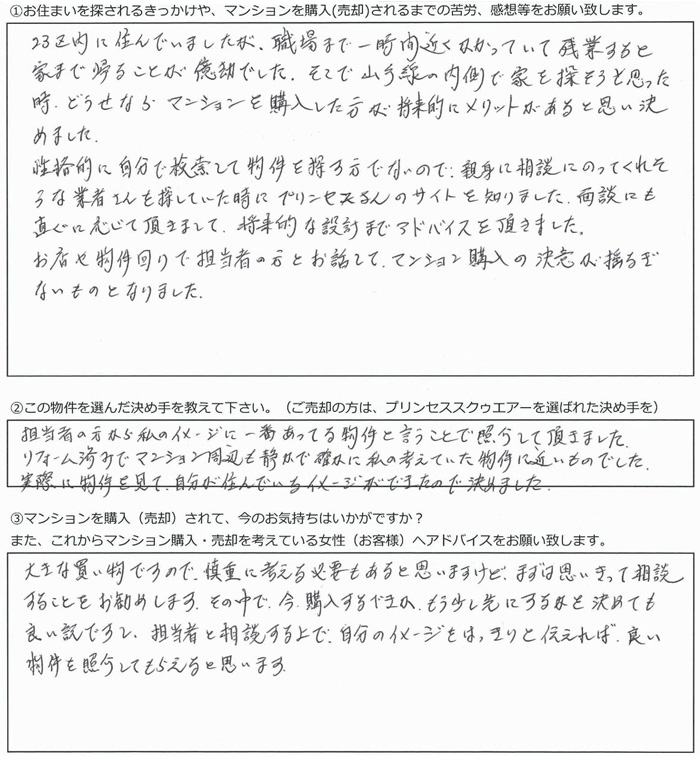 ①お住まいを探されるきっかけや、マンションを購入(売却)されるまでの苦労、感想等をお願い致します。
23区内に住んでいましたが、職場まで一時間近くかかっていて残業すると
家まで帰ることが億劫でした。そこで山手線の内側で家を探そうと思った
時、どうせなら マンションを購入した方が将来的にメリットがあると思い決
めました。
性格的に自分で検索して物件を探す方でないので、親身に相談にのってくれそ
うな業者さんを探していた時にプリンセスさんのサイトを知りました。面談にも
直ぐに応じて頂きまして、将来的な設計までアドバイスを頂きました。
お店や物件回りで担当者の方とお話して、マンション購入の決意が揺るぎ
ないものとなりました。
②この物件を選んだ決め手を教えて下さい。（ご売却の方は、プリンセススクゥエアーを選ばれた決め手を）
担当者の方から私のイメージに一番あってる物件と言うことで照介して頂きました。
リフォーム済みでマンション周辺も静かで確かに私の考えていた物件に近いものでした。
実際に物件を見て、自分が住んでいるイメージができたので決めました。
③マンションを購入（売却）されて、今のお気持ちはいかがですか？
また、これからマンション購入・売却を考えている女性（お客様）へアドバイスをお願い致します。
大きな買い物ですので、慎重に考える必要もあると思いますけど、まずは思いきって相談
することをお勧めします。その中で、今、購入するできか、もう少し先にするかを決めても
良い訳ですし、担当者と相談する上で、自分のイメージをはっきりと伝えれば、良い
物件を照介してもらえると思います。